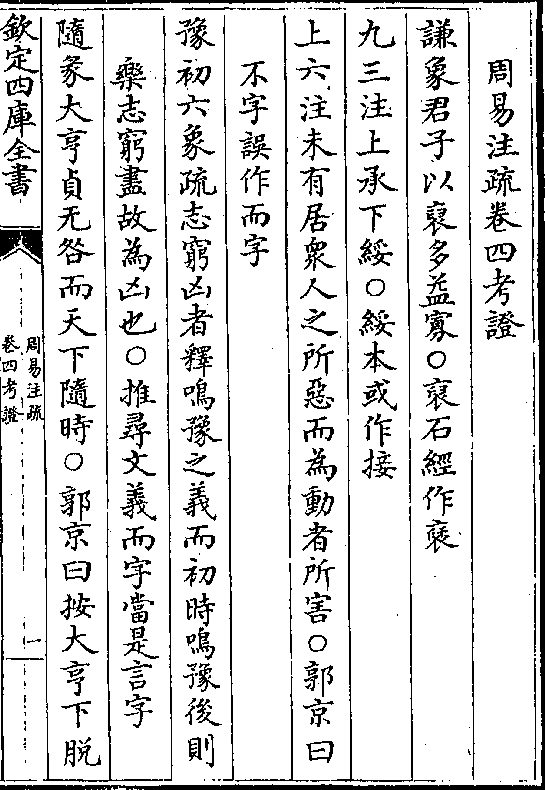 周易注疏卷四考證
謙象君子以裒多益寡○裒石經作褎
九三注上承下綏○綏本或作接
上六注未有居衆人之所惡而為動者所害○郭京曰
不字誤作而字
豫初六象疏志窮凶者釋鳴豫之義而初時鳴豫後則
樂志窮盡故為凶也○推尋文義而字當是言字
隨彖大亨貞无咎而天下隨時○郭京曰按大亨下脱
欽定四庫全書
周易注疏
卷四考證
一